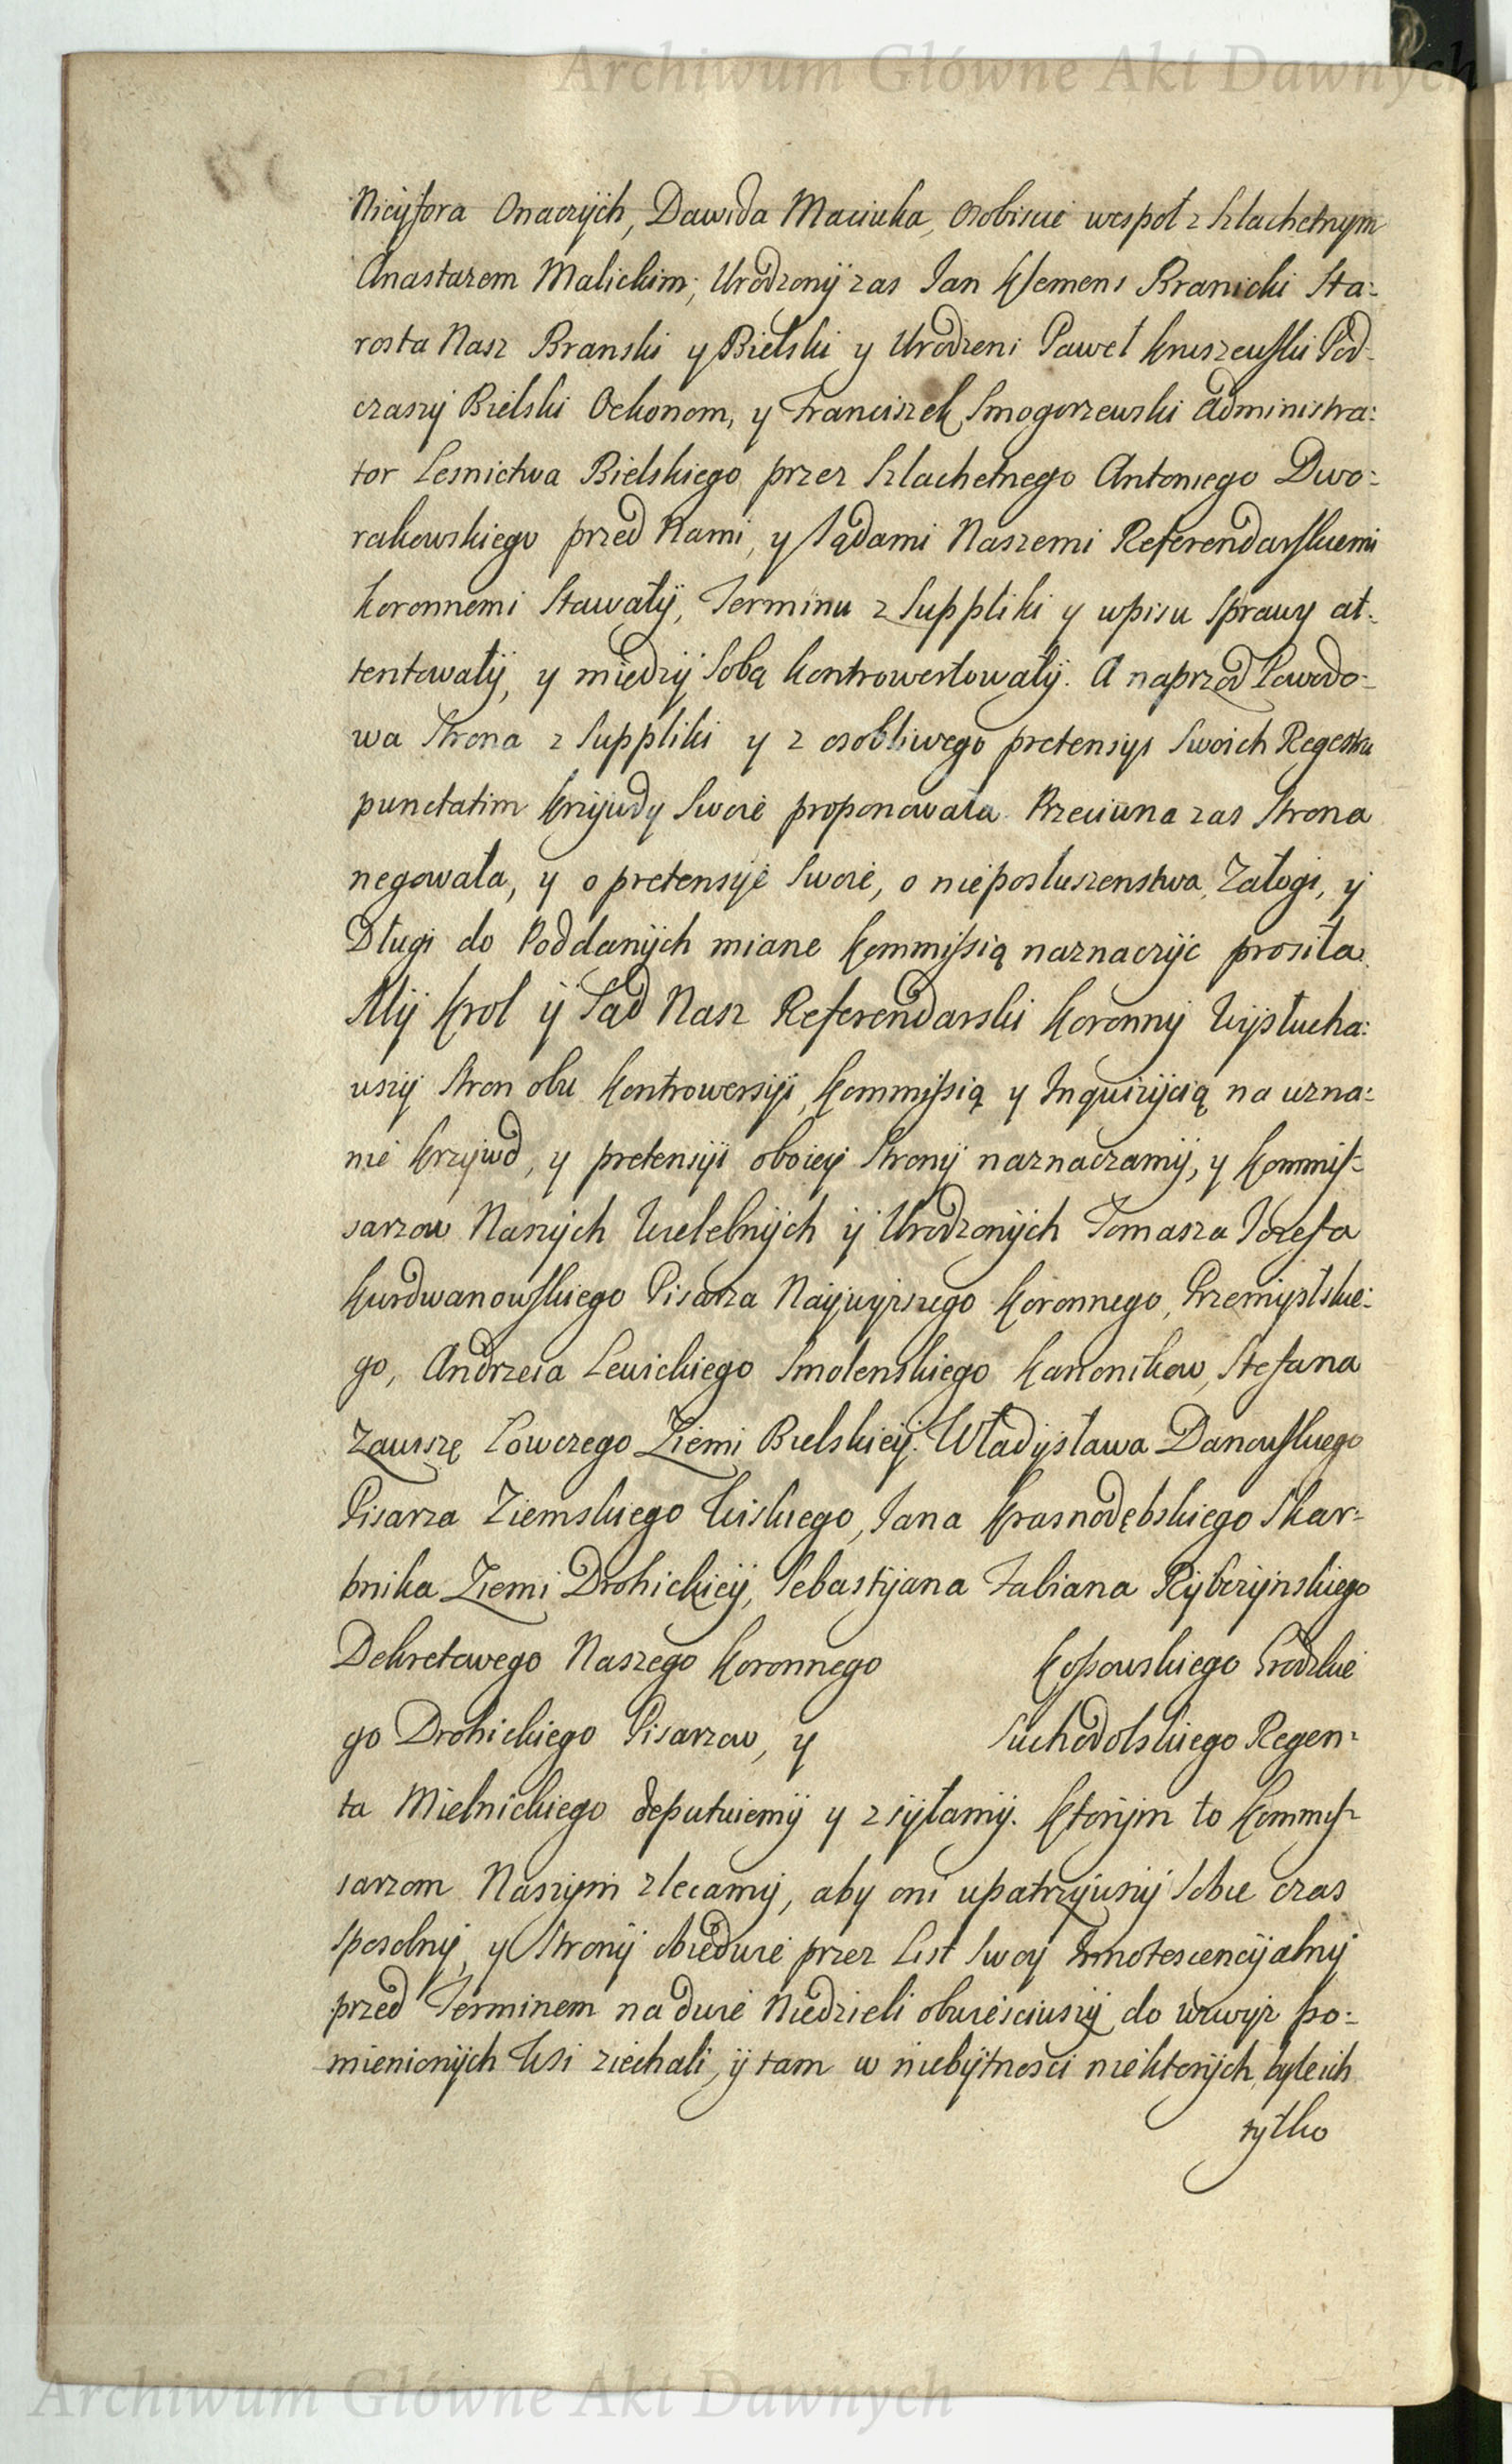 Archiwum Główne Akt Dawnych
Nicyfora Onaczÿch, Dawida Maciuka, osobiscie wespoł z Szlachetnym
Anastazem Malickim; Urodzonÿ zas Jan Klemens Branicki Sta:
rosta Nasz Branski y Bielski y Urodzeni Paweł Kruszewski Pod:
czaszÿ Bielski Oekonom, y Franciszek Smogorzewski Administra:
tor Lesnictwa Bielskiego przez Szlachetnego Antoniego Dwo:
rakowskiego przed Nami, y Sądami Naszemi Referendarskiemi
Koronnemi Stawałÿ, Terminu z Suppliki y wpisu Sprawy at:
tentowałÿ, y międzÿ Sobą kontrowertowałÿ. A naprzod Powodo:
wa Strona z Suppliki y z osobliwego pretensyi Swoich Regestru
punctatim krzÿwdy Swoie proponowała. Przeciwna zas Strona
negowała, y o pretensÿe Swoie, o nieposłuszenstwa, Załogi, ÿ
Długi do Poddanÿch miane Kommissią naznaczÿc prosiła.
Mÿ Krol ÿ Sąd Nasz Referendarski Koronny Wÿsłucha:
wszÿ Stron obu kontrowersÿi, Kommissią y Inquizÿcią na uzna:
nie krzÿwd, y pretensÿi oboieÿ Stronÿ naznaczamÿ, y Kommis:
sarzow Naszÿch Wielebnÿch ÿ Urodzonÿch Tomasza Jozefa
Kurdwanowskiego Pisarza Naÿwÿzszego Koronnego, Przemÿslskie:
go, Andrzeia Lewickiego Smolenskiego Kanonikow, Stefana
Zawiszę Łowczego Ziemi Bielskieÿ. Władÿsława Danowskiego
Pisarza Ziemskiego Wiskiego, Jana Krasnodębskiego Skar:
bnika Ziemi Drohickieÿ, Sebastÿana Fabiana Rÿbczÿnskiego
Dekretowego Naszego Koronnego Kossowskiego Grodzkie
go Drohickiego Pisarzow, y Suchodolskiego Regen:
ta Mielnickiego deputuiemÿ y zsÿłamÿ. Ktorÿm to Kommis:
sarzom Naszÿm zlecamÿ, aby oni upatrzÿwszÿ Sobie czas
sposobnÿ, y Stronÿ obiedwie przez List Swoy Innotescencÿalnÿ
przed Terminem na dwie Niedzieli obwiesciwszÿ do wzwÿz po:
mienionÿch Wsi ziechali, ÿ tam w niebÿtnosci niektorÿch, byle ich
tylko
Archiwum Główne Akt Dawnych